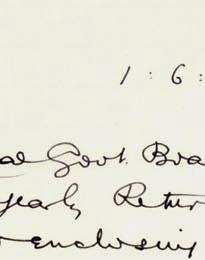 1 : 6 :
al Govt. Boa
yearly Retur
enclosing